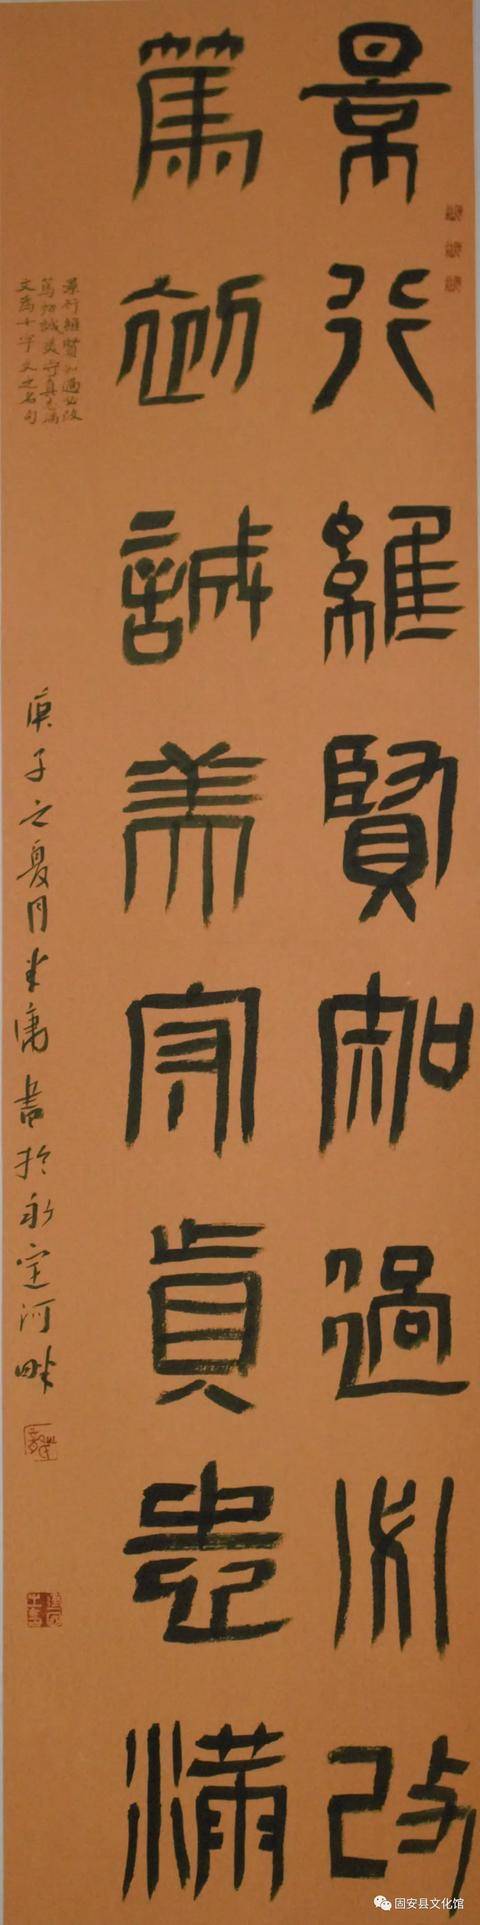 景行維賢知過必改
篤初誠美守真志滿
景行維賢知過必改
篤初誠美守真志滿
文為千字文之名句
庚子之夏月半庸書於永定河畔
固安县文化馆